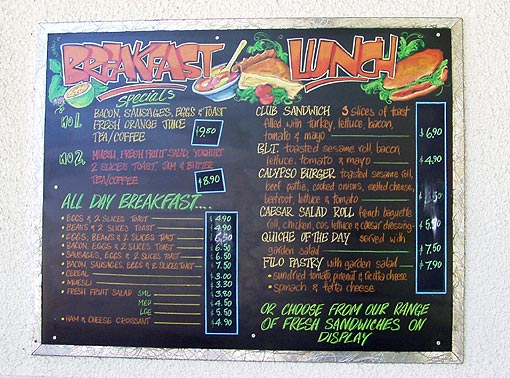 BREAKFAST LUNCH
Specials
No 1. BACON, SAUSAGES, EGGS & TOAST
FRESH ORANGE JUICE
TEA/COFFEE $9.50
No 2. MUESLI, FRESH FRUIT SALAD, YOGHURT
2 SLICES TOAST, JAM & BUTTER
TEA/COFFEE $8.90
ALL DAY BREAKFAST....
• EGGS & 2 SLICES TOAST 4.90
• BEANS & 2 SLICES TOAST 4.90
• EGGS, BEANS & 2 SLICES TOAST 6.50
• BACON, EGGS & 2 SLICES TOAST 6.50
• SAUSAGES, EGGS & 2 SLICES TOAST 6.50
• BACON, SAUSAGES, EGGS & 2 SLICES TOAST 7.50
• CEREAL 3.00
• MUESLI 3.30
• FRESH FRUIT SALAD SML 3.50
MED 4.50
LGE 5.50
• HAM & CHEESE CROISSANT 4.90
CLUB SANDWICH 3 slices of toast
filled with turkey, lettuce, bacon,
tomato & mayo $6.90
B.L.T. toasted sesame roll, bacon,
lettuce, tomato & mayo $4.90
CALYPSO BURGER toasted sesame roll,
beef pattie, cooked onions, melted cheese,
beetroot, lettuce & tomato
CAESAR SALAD ROLL french baguette
roll, chicken, cos lettuce & caesar dressing
QUICHE OF THE DAY served with
garden salad $7.50
FILO PASTRY with garden salad $7.90
• sundried tomato, & ricotta cheese
• spinach & fetta cheese
OR CHOOSE FROM OUR RANGE
OF FRESH SANDWICHES ON
DISPLAY